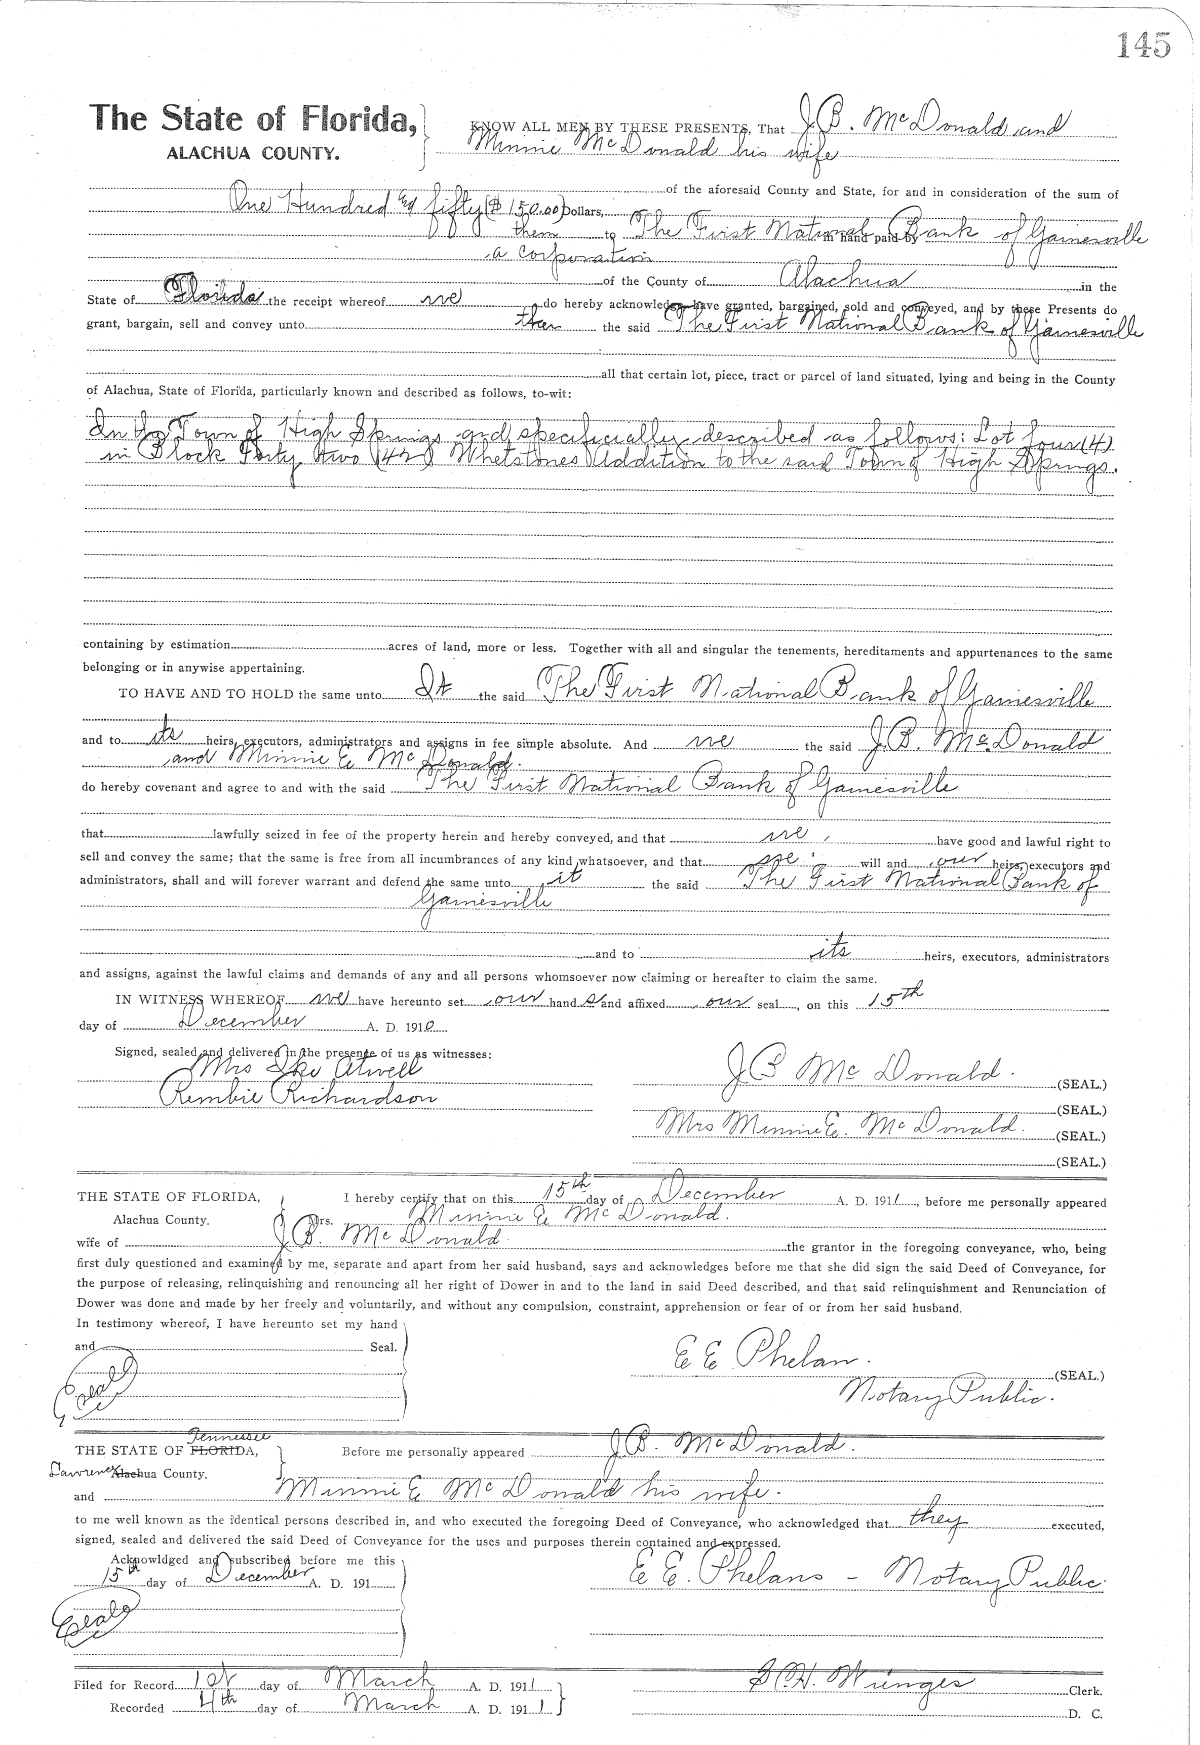 145
The State of Florida,
ALACHUA COUNTY.
KNOW ALL MEN BY THESE PRESENTS, That J. B. McDonald and
Minnie McDonald his wife
of the aforesaid County and State, for and in consideration of the sum of
One Hundred and fifty ($150.00) Dollars,
them to The First National Bank of Gainesville in hand paid by
a corporation
of the County of Alachua in the
State of Florida the receipt whereof we do hereby acknowledge have granted, bargained, sold and conveyed, and by these Presents do
grant, bargain, sell and convey unto then the said The First National Bank of Gainesville
all that certain lot, piece, tract or parcel of land situated, lying and being in the County
of Alachua, State of Florida, particularly known and described as follows, to-wit:
In the Town of High Springs and specificially described as follows: Lot four (4)
in Block Forty two (42) Whetstones Addition to the said Town of High Springs.
containing by estimation acres of land, more or less. Together with all and singular the tenements, hereditaments and appurtenances to the same
belonging or in anywise appertaining.
TO HAVE AND TO HOLD the same unto It the said The First National Bank of Gainesville
and to its heirs, executors, administrators and assigns in fee simple absolute. And we the said J. B. McDonald
and Minnie E McDonald.
do hereby covenant and agree to and with the said The First National Bank of Gainesville
that lawfully seized in fee of the property herein and hereby conveyed, and that we, have good and lawful right to
sell and convey the same; that the same is free from all incumbrances of any kind whatsoever, and that we will and our heirs, executors and
administrators, shall and will forever warrant and defend the same unto it the said The First National Bank of
Gainesville
and to its heirs, executors, administrators
and assigns, against the lawful claims and demands of any and all persons whomsoever now claiming or hereafter to claim the same.
IN WITNESS WHEREOF we have hereunto set our hand s and affixed our seal, on this 15th
day of December A. D. 1910
Signed, sealed and delivered in the presence of us as witnesses:
Mrs Ike Atwell
J B McDonald. (SEAL.)
Rembie Richardson
(SEAL.)
Mrs Minnie E. McDonald. (SEAL.)
(SEAL.)
THE STATE OF FLORIDA, I hereby certify that on this 15th day of December A. D. 1911, before me personally appeared
Alachua County. Mrs. Minnie E McDonald.
wife of J B. McDonald the grantor in the foregoing conveyance, who, being
first duly questioned and examined by me, separate and apart from her said husband, says and acknowledges before me that she did sign the said Deed of Conveyance, for
the purpose of releasing, relinquishing and renouncing all her right of Dower in and to the land in said Deed described, and that said relinquishment and Renunciation of
Dower was done and made by her freely and voluntarily, and without any compulsion, constraint, apprehension or fear of or from her said husband.
In testimony whereof, I have hereunto set my hand
and Seal.
E E Phelan.
(SEAL.)
Seal
Notary Public.
Tennessee
THE STATE OF FLORIDA, Before me personally appeared J B. McDonald.
Lawrence Alachua County.
and Minnie E McDonald his wife.
to me well known as the identical persons described in, and who executed the foregoing Deed of Conveyance, who acknowledged that they executed,
signed, sealed and delivered the said Deed of Conveyance for the uses and purposes therein contained and expressed.
Acknowldged and subscribed before me this
15th day of December A. D. 191
E E. Phelans - Notary Public.
Seal
Filed for Record 1st day of March A. D. 1911
S. H. Wienges Clerk.
Recorded 4th day of March A. D. 1911
D. C.